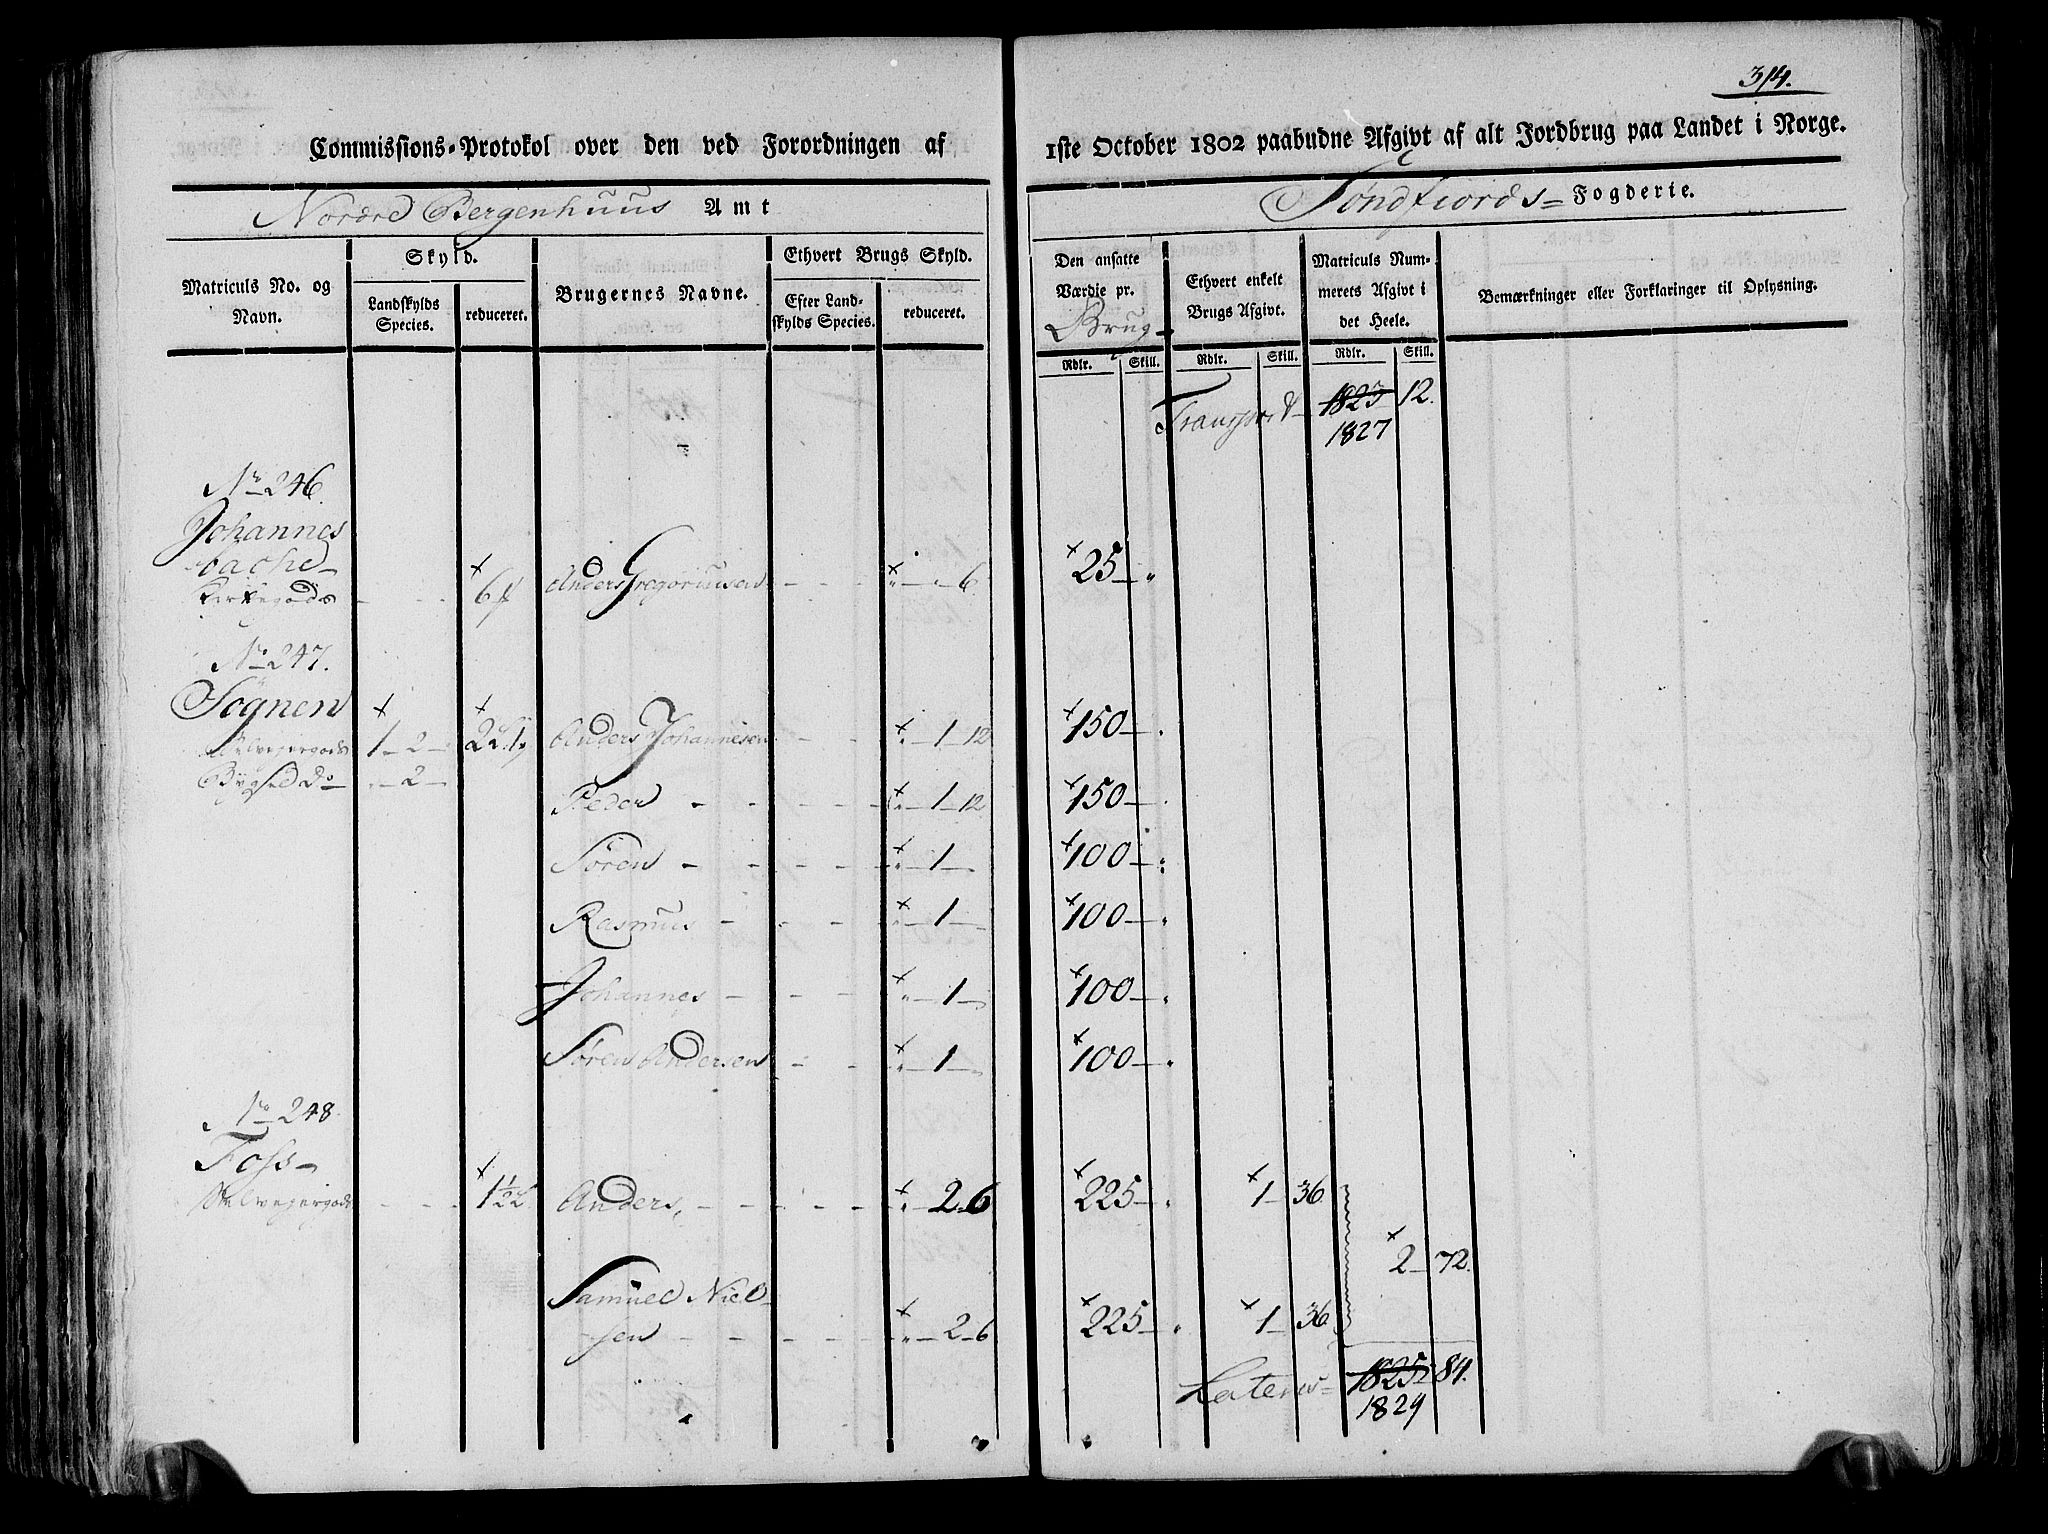 314.
Commissions-Protokol over den ved Forordningen af 1ste October 1802 paabudne Afgivt af alt Jordbrug paa Landet i Norge.
Nordre Bergenhuus Amt
Søndfiords= Fogderie.
Matriculs No. og Navn.
Skyld.
Landskylds Species.
reduceret.
Brugernes Navne.
Ethvert Brugs Skyld.
Efter Landskylds Species.
reduceret.
Den ansatte Værdie pr. Brug
Ethvert enkelt Brugs Afgivt.
Matriculs Nummerets Afgivt i det Heele.
Bemærkninger eller Forklaringer til Oplysning.
Rdlr. Skill. Rdlr. Skill. Rdlr. Skill.
Transport 1823 12.
1827
No 246.
Johannes
bache
Kirkegods - - 6 Anders Gregoriusen - - - " - " 6. 25 - "
No 247.
Sögnen
Selvejergods 1 - 2 - Anders Johannesen - - " - 1 - 12 150 - "
Bygsel Do " - 2 -
Peder - - - - " - 1 - 12 150 - "
Søren - - - - " - 1 - 100 - "
Rasmus - - - " - 1 - 100 - "
Johannes - - - " - 1 - 100 - "
Søren Andersen - - " - 1 - 100 - "
No 248.
Foss -
Selvejergods - - - 1 1/2 L Anders, - - - - " - 2 - 6 225 - " 1 - 36.
2 - 72.
Samuel Niel-
sen - - - - " - 2 - 6 225 - " 1 - 36
Lateris = 1825 - 84.
1829